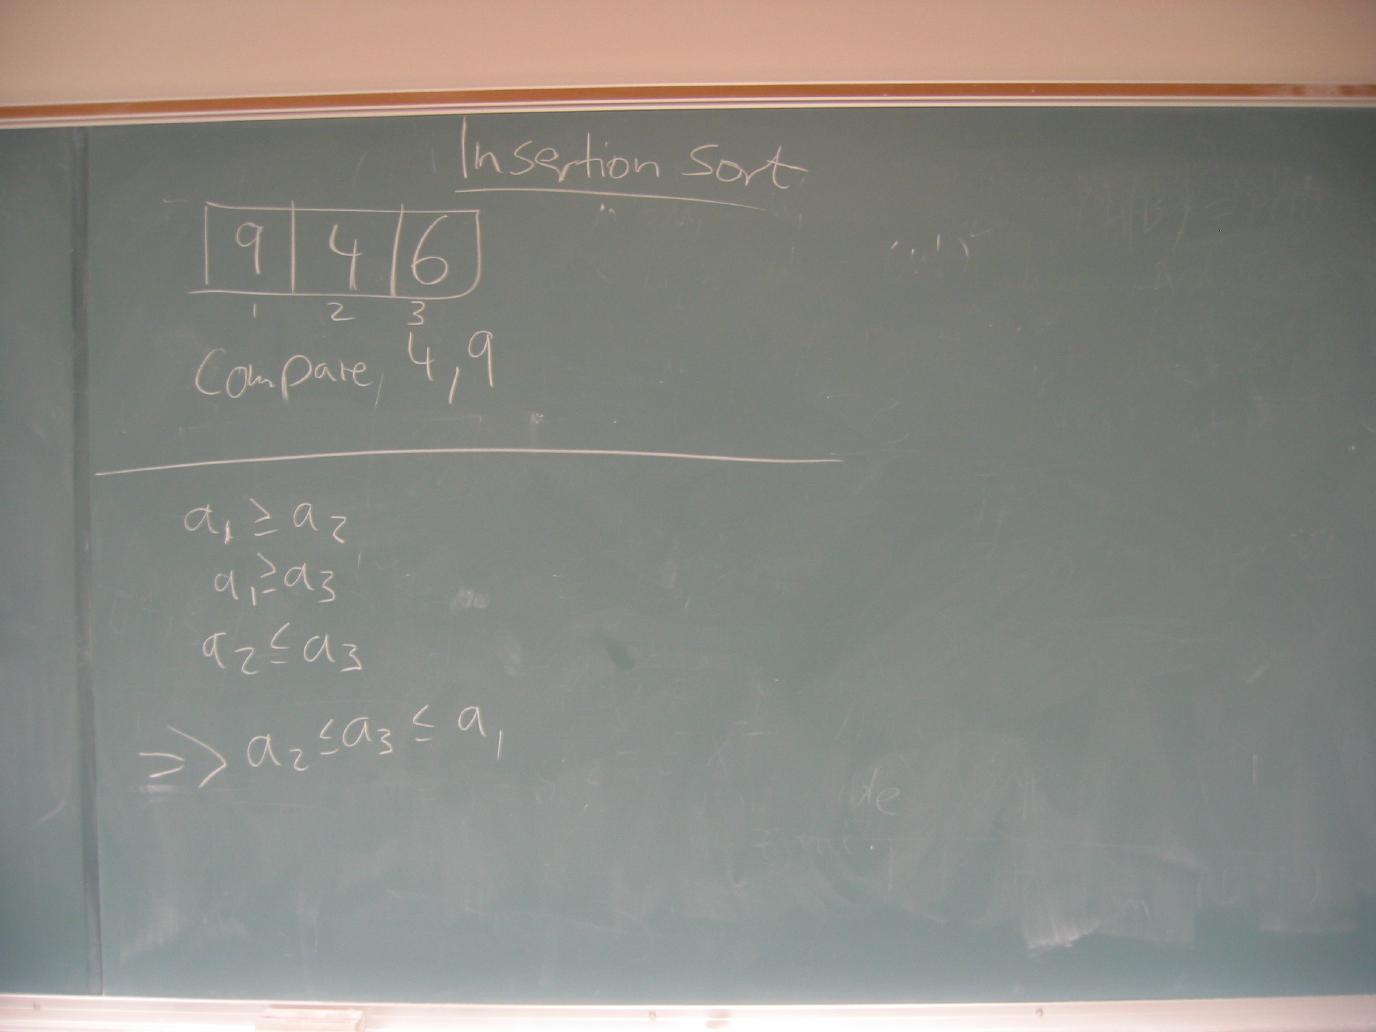 Insertion Sort
9 4 6
1 2 3
Compare, 4, 9
a₁ ≥ a₂
a₁ ≥ a₃
a₂ ≤ a₃
=> a₂ ≤ a₃ ≤ a₁